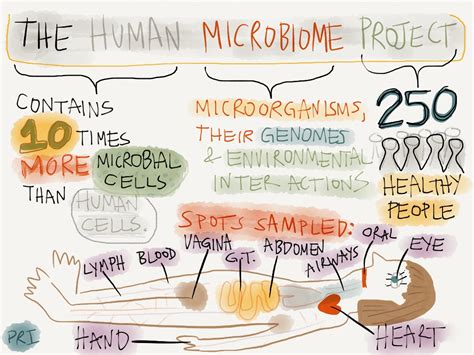 THE HUMAN MICROBIOME PROJECT
CONTAINS
10 TIMES
MORE MICROBIAL
CELLS
THAN HUMAN
CELLS.
MICROORGANISMS,
THEIR GENOMES
& ENVIRONMENTAL
INTERACTIONS
250
HEALTHY
PEOPLE
SPOTS SAMPLED:
LYMPH
BLOOD
VAGINA
G.T.
ABDOMEN
AIRWAYS
ORAL
EYE
PRI
HAND
HEART